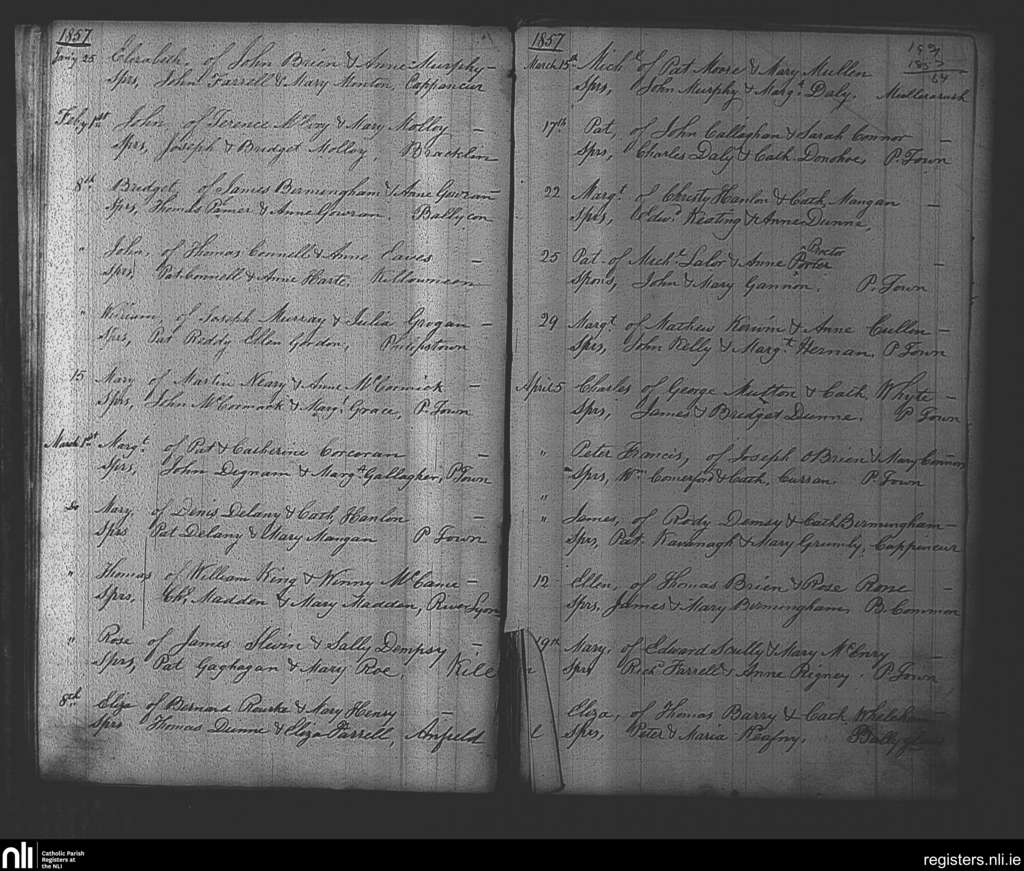 1857
Jany 25 Elizabeth, of John Brien & Anne Murphy -
Sprs, John Farrell & Mary Monton, Cappancur
Feby 1st John, of Terence McEvoy & Mary Molloy -
Sprs, Joseph & Bridget Molloy, Bracklin
8th Bridget, of James Bermingham & Anne Gowran
Sprs, Thomas Palmer & Anne Gowran. Ballycon
" John, of Thomas Connell & Anne Eaves -
Sprs, Pat Connell & Anne Harte.
" William, of Joseph Murray & Julia Grogan -
Sprs, Pat Reddy Ellen Gordon, Philipstown
15 Mary of Martin Neary & Anne McCormick -
Sprs, John McCormack & Mary Grace, P. Town
March 1st Margt. of Pat & Catherine Corcoran -
Sprs, John Degnam & Margt. Gallagher, P Town
Do Mary, of Denis Delany & Cath, Hanlon -
Sprs Pat Delany & Mary Mangan P Town
" Thomas of William King & Winny McCann -
Sprs, Madden & Mary Madden, River Lyon
" Rose of James Slevin & Sally Dempsy -
Sprs, Pat Gaghagan & Mary Roe,
8th Eliza of Bernard Rourke & Mary Henry -
Sprs Thomas Dunne & Eliza Farrell, Anfield
1857
March 15th Michl. of Pat Moore & Mary Mullen
Sprs, John Murphy & Margt. Daly. Mullerarush
17th Pat, of John Callaghan & Sarah Connor -
Sprs, Charles Daly & Cath. Donohoe, P. Town
22 Margt. of Christy Hanlon & Cath, Mangan -
Sprs, Edwd. Keating & Anne Dunne,
25 Pat of Michl. Lalor & Anne Porter Proctor -
Spons, John & Mary Gannon. P. Town
29 Margt. of Mathew Kerwin & Anne Cullen -
Sprs, John Kelly & Margt. Hernan, P Town
April 5 Charles of George Mutton & Cath Whyte -
Sprs, James & Bridget Dunne. P Town
" Peter Francis, of Joseph OBrien & Mary Connon
Sprs, Wm. Comerford & Cath, Curran. P. Town
"
" James, of Rody Demsy & Cath Birmingham -
Sprs, Pat Kavanagh & Mary Grumly, Cappincur
12 Ellen, of Thomas Brien & Rose Rone -
Sprs, James & Mary Bermingham, B. Common
19th Mary, of Edward Scully & Mary McEnry -
Sprs Richd. Farrell & Anne Rigney. P. Town
Eliza, of Thomas Barry & Cath
Sprs, Peter & Maria Keafny.
nli
Catholic Parish
Registers at
the NLI
registers.nli.ie